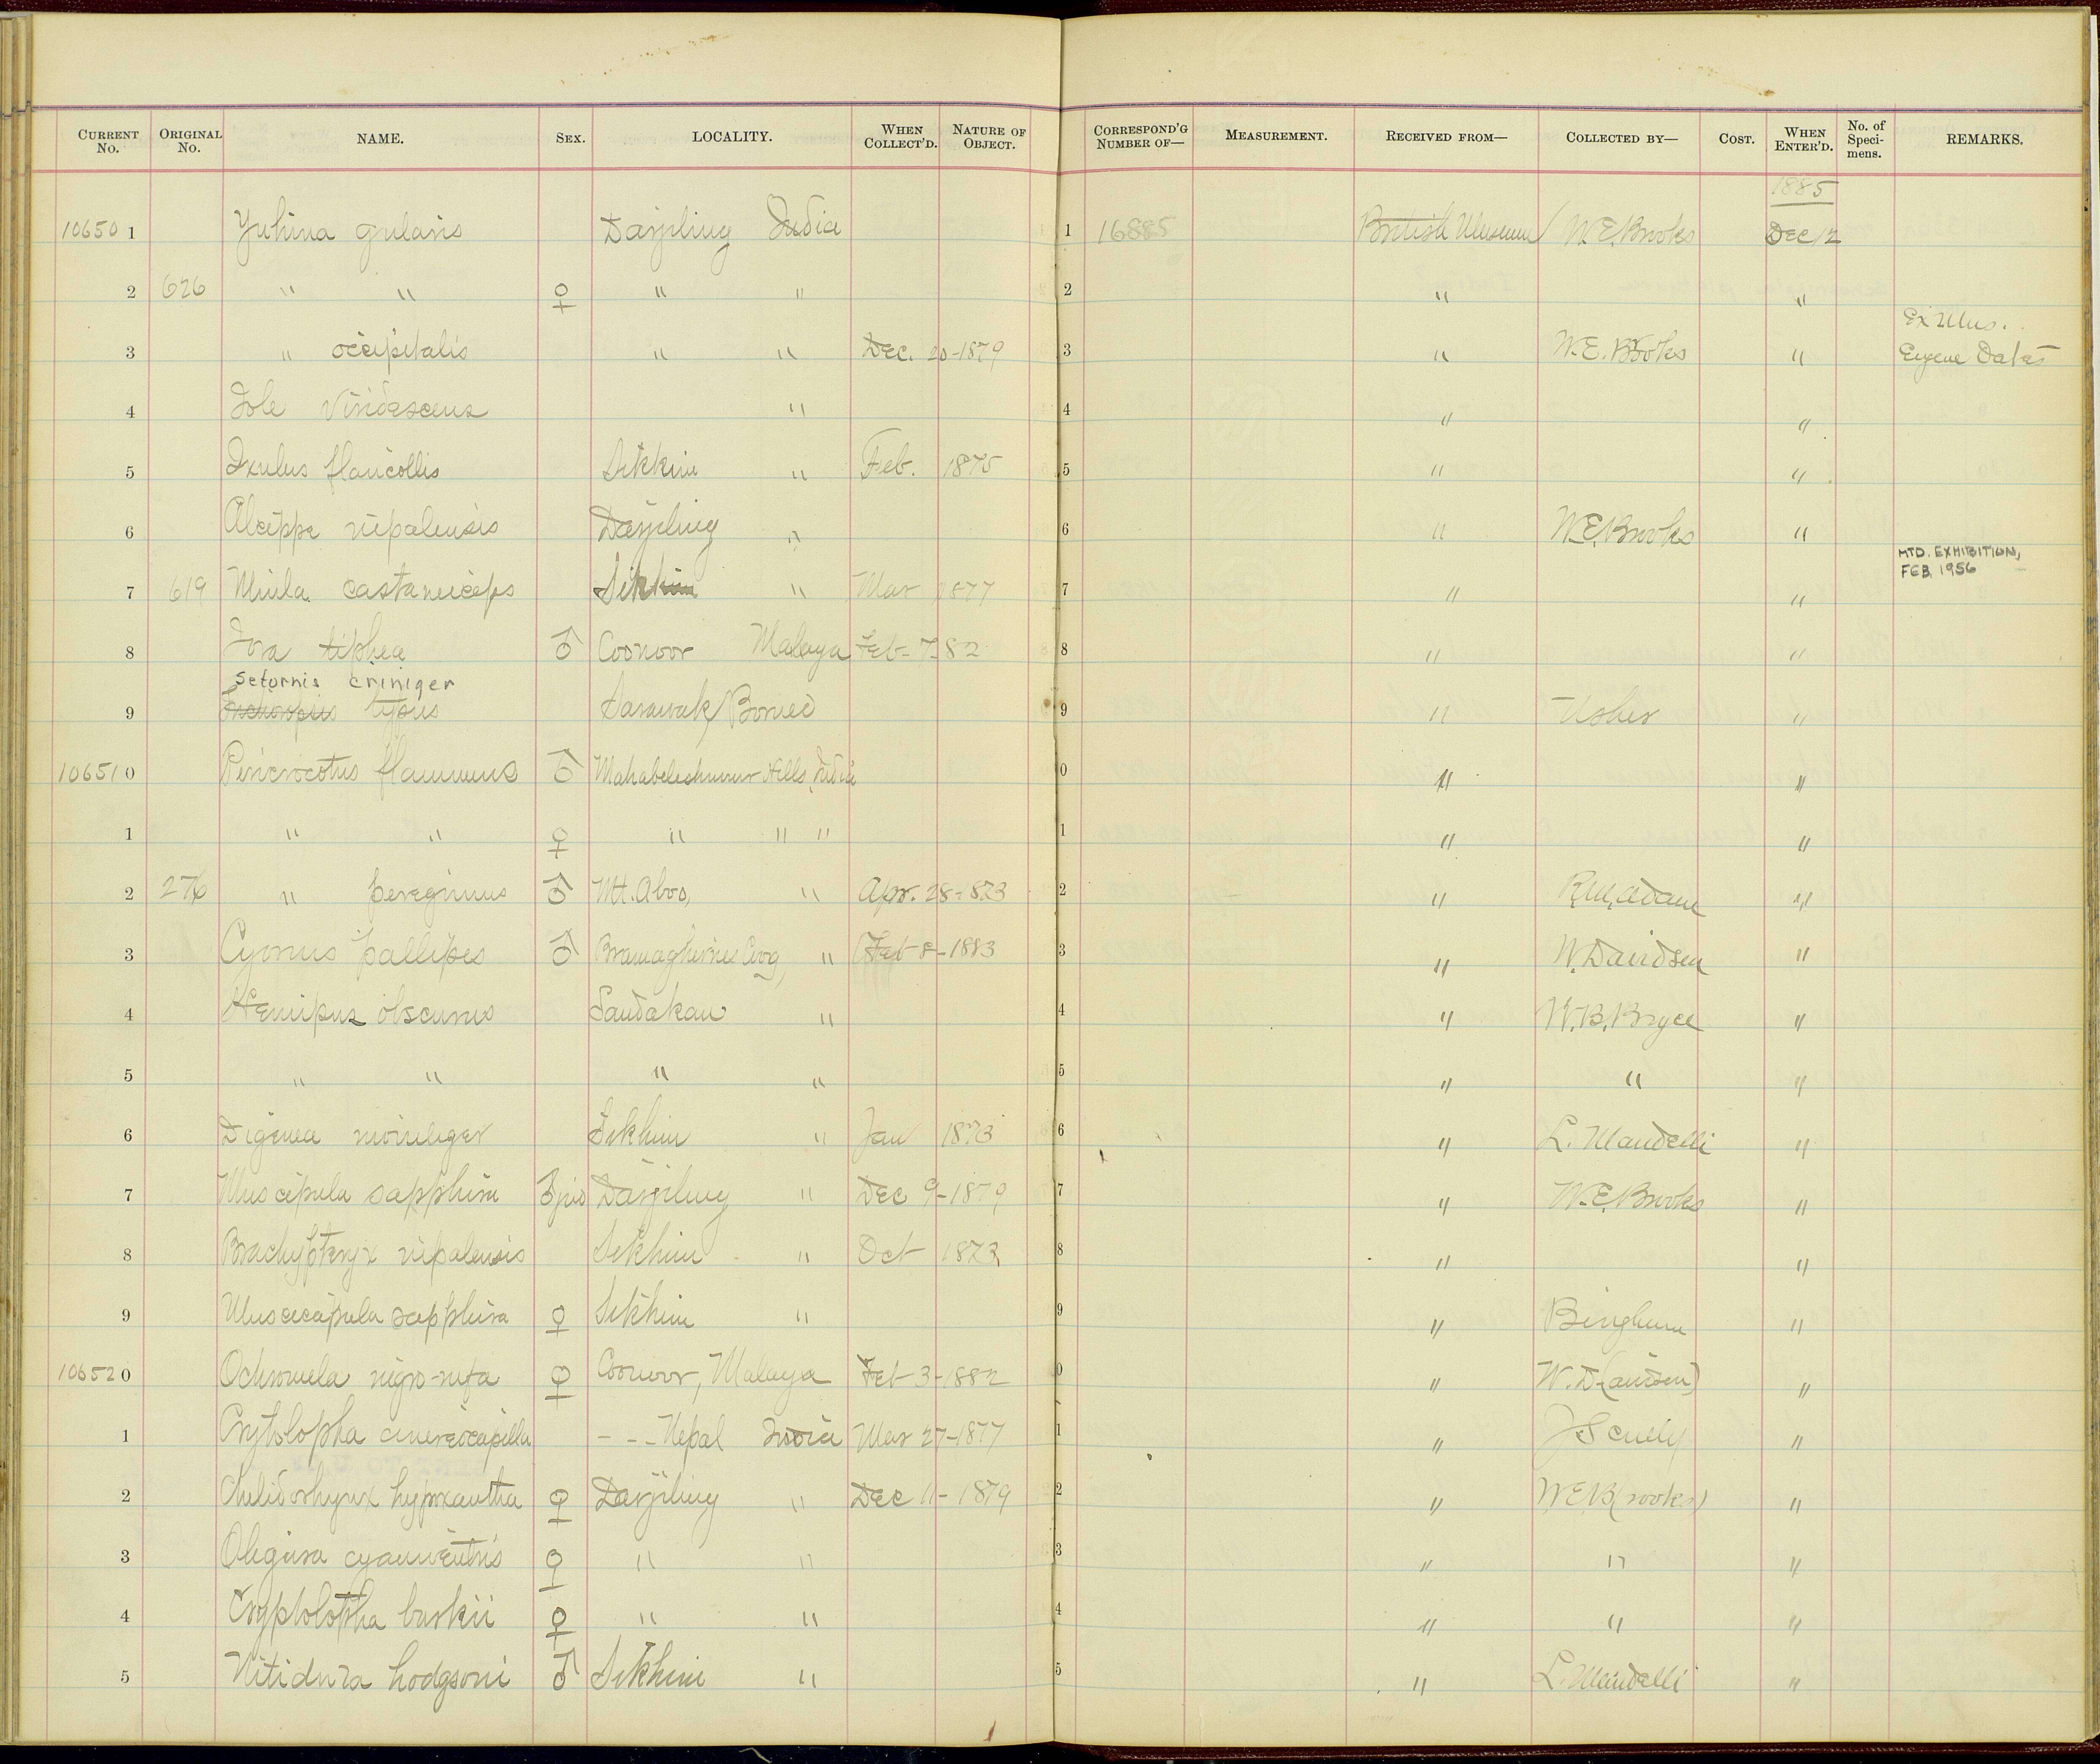 CURRENT No. ORIGINAL No. NAME. SEX. LOCALITY. WHEN COLLECT'D. NATURE OF OBJECT. CORRESPOND'G NUMBER OF— MEASUREMENT. RECEIVED FROM— COLLECTED BY— COST. WHEN ENTER'D. No. of Speci-mens. REMARKS.
1885
10650 1 Yuhina gularis Darjiling India 1 16885 British Museum W.E. Brooks Dec 12
2 626 " " ♀ " " 2 " "
Ex Mus.
3 " occipitalis " " Dec. 20-1879 3 " W.E. Brooks " Eugene Oates
4 Iole viridescens " 4 " "
5 Ixulus flavicollis Sikkim " Feb. 1875 5 " "
6 Alcippe nipalensis Darjiling " 6 " W.E. Brooks "
MTD. EXHIBITION,
FEB. 1956
7 619 Minla castaneiceps Sikkim " Mar 1877 7 " "
8 Iora tiphea ♂ Coonoor Malaya Feb-7-82 8 " "
Setornis criniger
9 typus Sarawak Borneo 9 " Usher "
106510 Pericrocotus flammeus ♂ Mahabeleshwur Hills, India 0 " "
1 " " ♀ " " " 1 " "
2 276 " peregrinus ♂ Mt. Aboo, " Apr. 28-873 2 " R.M. Adam "
3 pallipes ♂ " Feb 8-1883 3 " W. Davidson "
4 Hemipus obscurus Sandakan " 4 " W.B. Pryce "
5 " " " " 5 " " "
6 Digenea moniliger Sikhim " Jan 1873 6 " L. Mandelli "
7 Muscipula sapphira ♂ juv Darjiling " Dec 9-1879 7 " W.E. Brooks "
8 Brachypteryx nipalensis Sikhim " Oct 1873 8 " "
9 Muscicapula sapphira ♀ Sikhim " 9 " Bingham "
106520 Ochromela nigro-rufa ♀ Coonoor, Malaya Feb 3-1882 0 " W. D(avison) "
1 Crytolopha cinereocapilla - - - Nepal India Mar 27-1877 1 " J Scully "
2 Chelidorhynx hypoxantha ♀ Darjiling " Dec 11-1879 2 " W.E.B(rooks) "
3 ♀ " " 3 " " "
4 Cryptolopha burkii ♀ " " 4 " " "
5 Nitidula hodgsoni ♂ Sikhim " 5 " L. Mandelli "